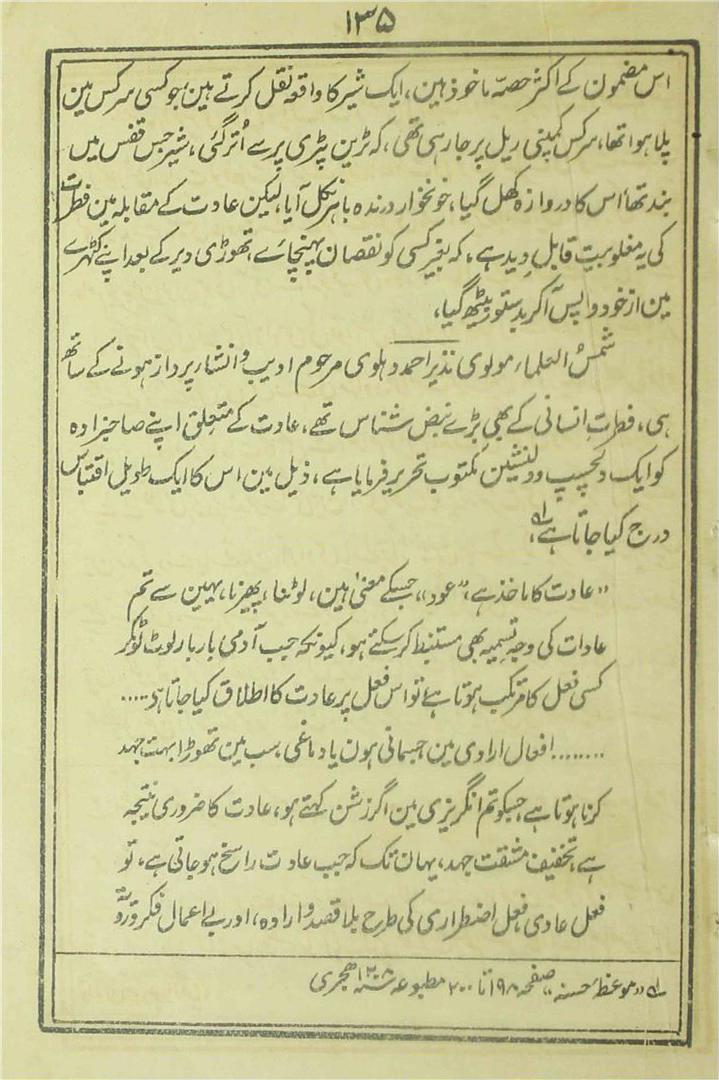 ۱۳۵
اس مضمون کے اکثر حصّہ ماخوذ ہین، ایک شیر کا واقعہ نقل کرتے ہین، جو کسی سرکس مین
پلا ہوا تھا، سرکس کمپنی ریل پر جا رہی تھی، کہ ٹرین پٹری پر سے اُتر گئی، شیر جس قفس میں
بند تھا اس کا دروازہ کھل گیا، خونخوار درندہ باہر نکل آیا، لیکن عادت کے مقابلہ مین فطرت
کی یہ مغلوبیت قابلِ دید ہے، کہ بغیر کسی کو نقصان پہنچائے، تھوڑی دیر کے بعد اپنے کٹہرے
مین از خود واپس آکر بدستور بیٹھ گیا،
شمسُ العلماء مولوی نذیر احمد دہلوی مرحوم ادیب و انشاء پرداز ہونے کے ساتھ
ہی، فطرتِ انسانی کے بھی بڑے نبض شناس تھے، عادت کے متعلق اپنے صاحبزادہ
کو ایک دلچسپ و دلنشین مکتوب تحریر فرمایا ہے، ذیل مین اس کا ایک طویل اقتباس
درج کیا جاتا ہے،
"عادت کا ماخذ ہے، "عود"، جسکے معنیٰ ہین، لوٹنا، پھرنا، یہین سے تم
عادات کی وجہِ تسمیہ بھی مستنبط کر سکتے ہو، کیونکہ جب آدمی بار بار لوٹ لوٹکر
کسی فعل کا مرتکب ہوتا ہے تو اس فعل پر عادت کا اطلاق کیا جاتا ہی.....
........ افعال ارادی مین جسمانی ہون یا دماغی سب مین تھوڑا بہت جہد
کرنا ہوتا ہے جسکو تم انگریزی مین اگزرشن کہتے ہو، عادت کا ضروری نتیجہ
ہے تخفیف مشقت جہد، یہان تک کہ جب عادت راسخ ہو جاتی ہے، تو
فعل عادی فعل اضطراری کی طرح بلا قصد و ارادہ، اور بے اعمال فکر و رویّہ
لہ "موعظہ حسنہ" صفحہ ۱۹۸ تا ۲۰۰ مطبوعہ ۱۳۰۸ ہجری